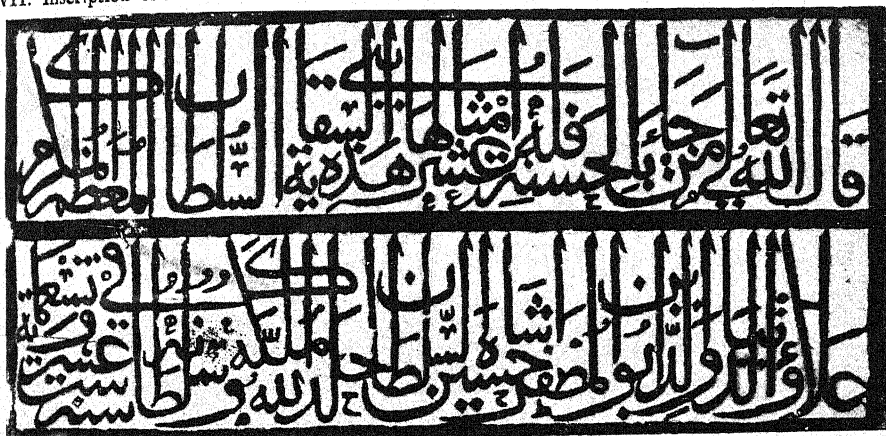 VII. Inscription
قال الله تعالى من جاء بالحسنة فله عشر امثالها بنى هذه السقاية السلطان المعظم المكرم
علاء الدنيا والدين ابو المظفر حسين شاه السلطان خلد الله ملكه وسلطانه فى سنة ست عشر وتسعماية